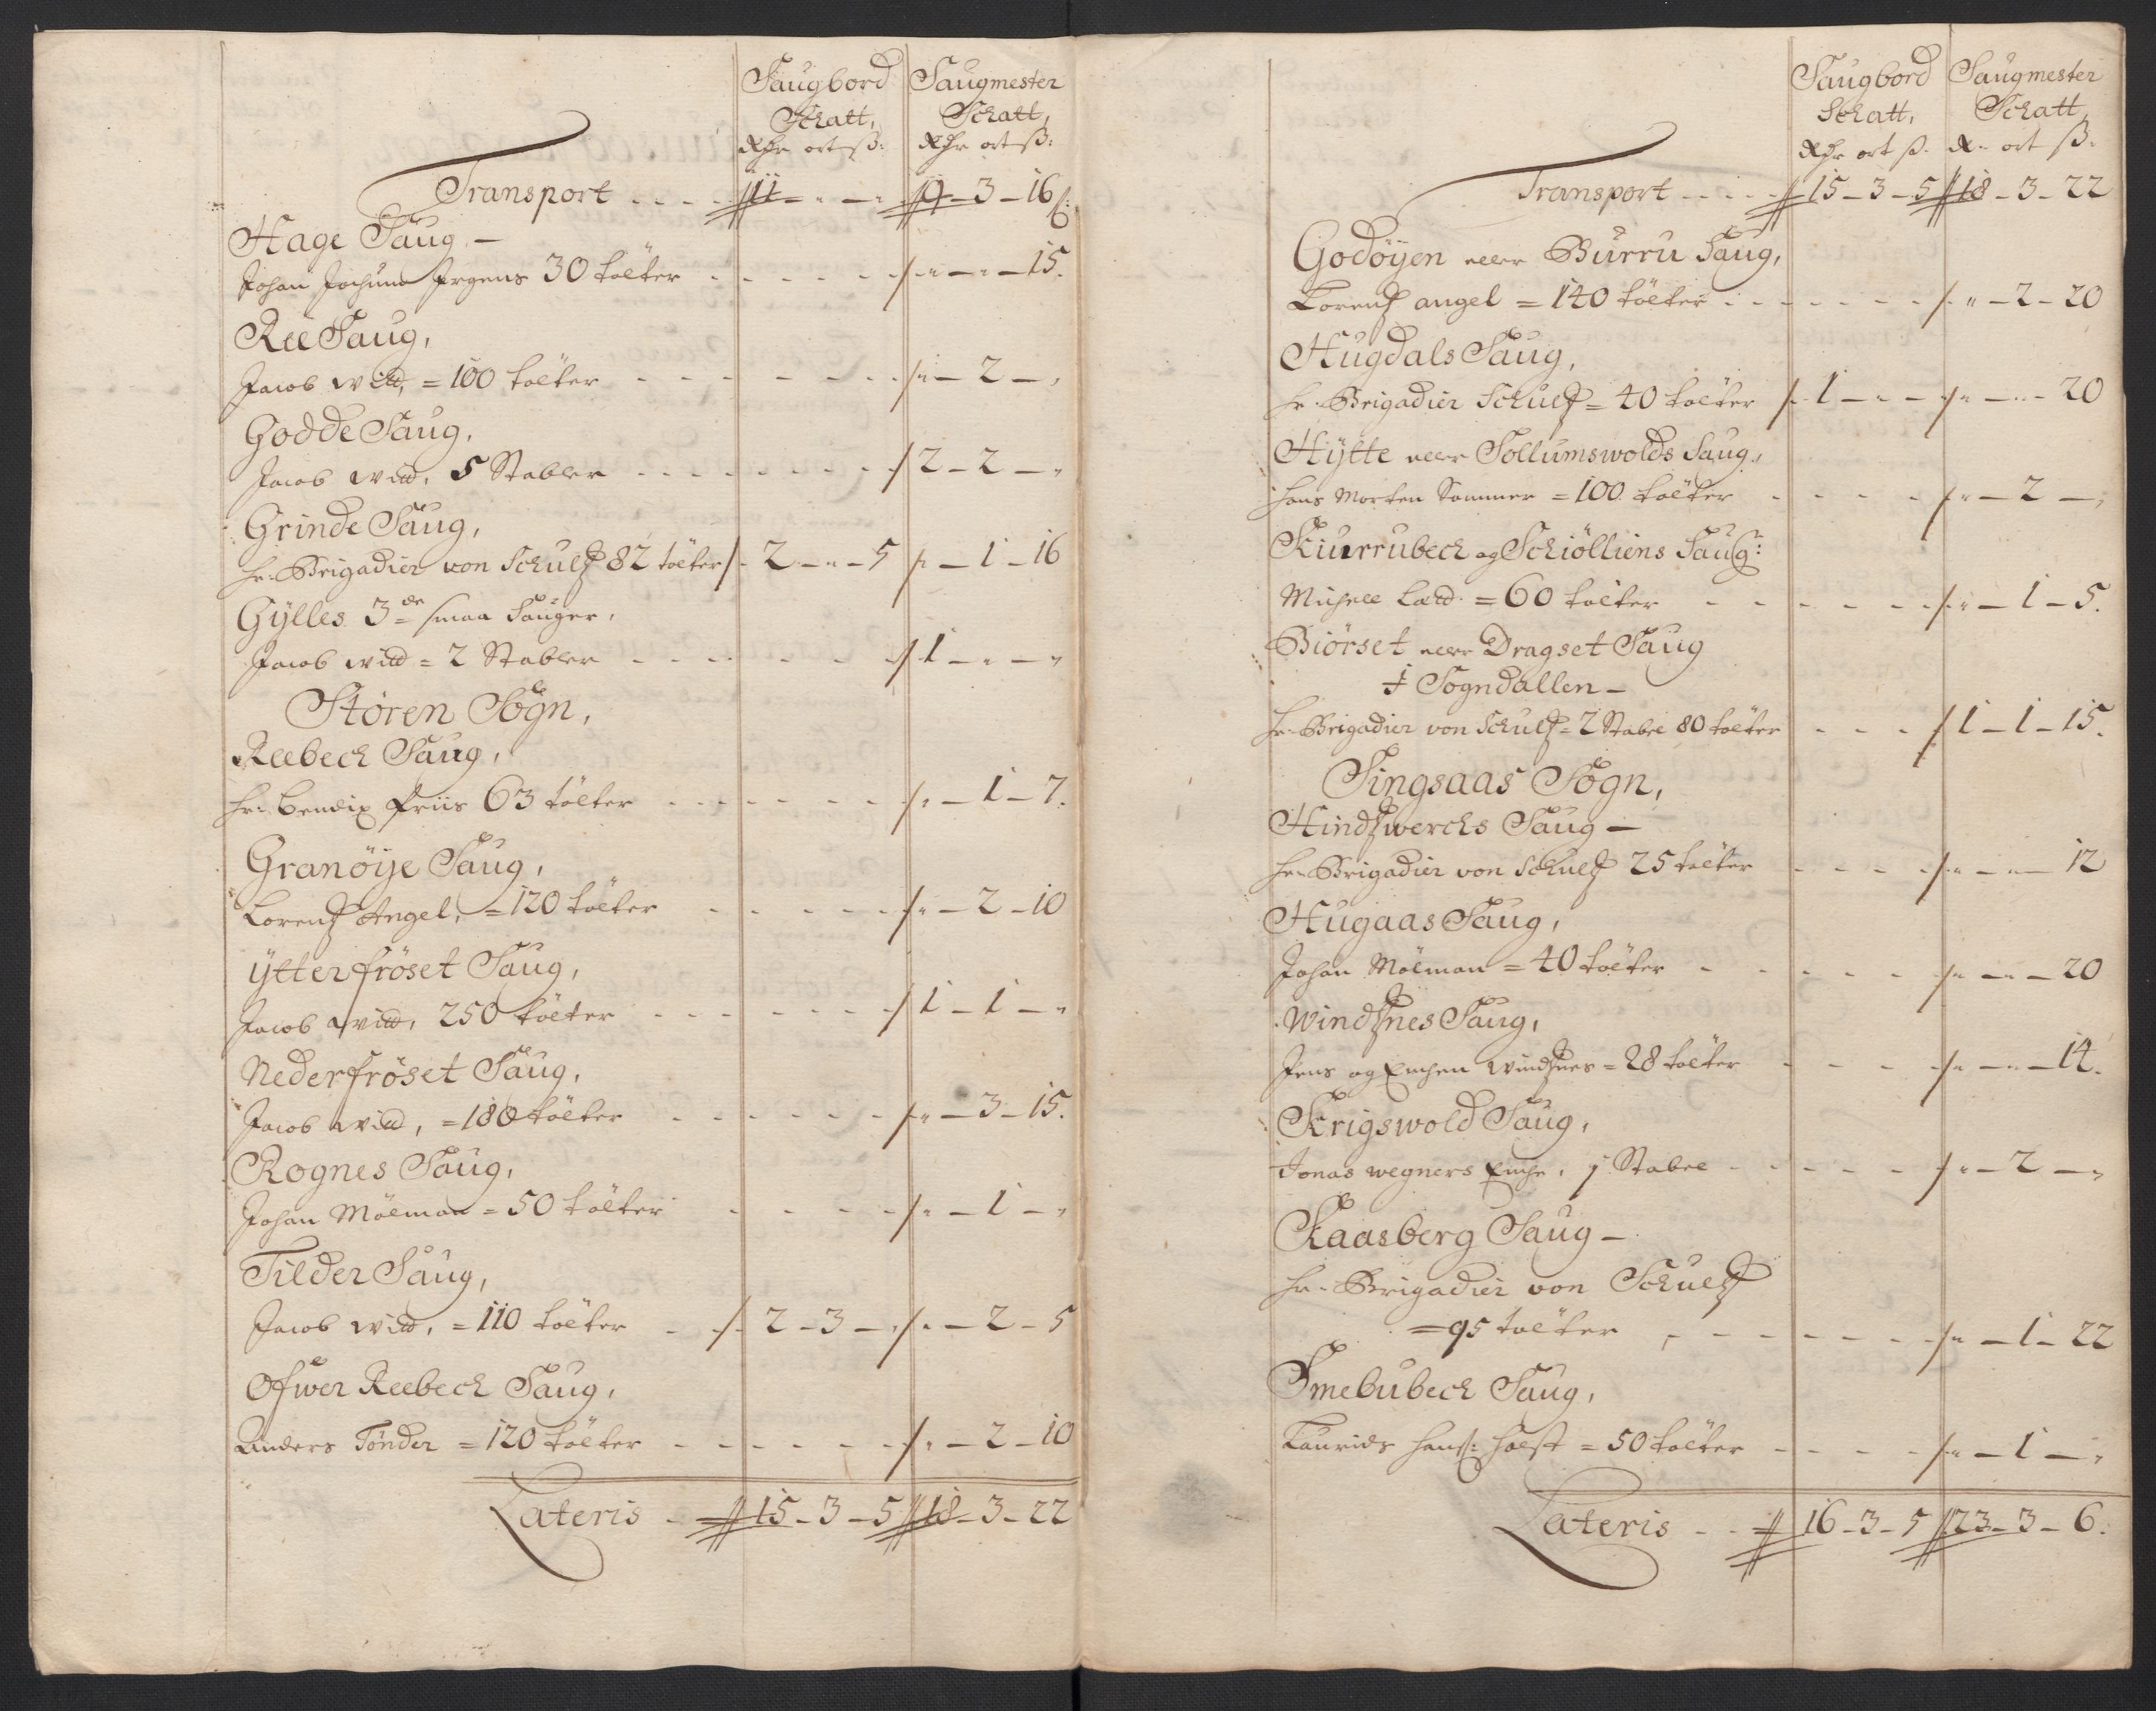 Saugbord Saugmester
Schatt, Schatt,
Rdr ort ß: Rdr ort ß:
Transport 11 - " - " 9 - 3 - 16 ß:
Hage Saug -
Johan Jochum Jrgens 30 tölter " - " - 15.
Ree Saug,
Jacob Witd, = 100 tölter " - 2 - "
Godde Saug,
Jacob Witd, 5 Stabler 2 - 2 - "
Grinde Saug,
Hr. Brigadier von Schultz 82 tölter 2 - " - 5 " - 1 - 16
Gylles 3de smaa Sauger,
Jacob Witd = 2 Stabler 1 - " - "
Stören Sogn,
Reebech Saug,
Hr. Bendix Friis 63 tölter " - 1 - 7.
Granöye Saug,
Lorentz Angel, = 120 tölter " - 2 - 10
Ytterfröset Saug,
Jacob Witd, 250 tölter 1 - 1 - "
Nederfröset Saug,
Jacob Witd, = 180 tölter " - 3 - 15.
Rognes Saug,
Johan Mölman = 50 tölter " - 1 - "
Tilder Saug,
Jacob Witd, = 110 tölter 2 - 3 - " " - 2 - 5
Ofwer Reebech Saug,
Anders Tönder = 120 tölter " - 2 - 10
Lateris 15 - 3 - 5 18 - 3 - 22
Saugbord Saugmester
Schatt, Schatt,
Rdr ort ß. R. ort ß.
Transport 15 - 3 - 5 18 - 3 - 22
Godöyen eller Burru Saug,
Lorentz angel = 140 tölter " - 2 - 20
Hugdals Saug,
Hr. Brigadier Schultz = 40 tölter 1 - " - " " - " - 20
Hytte eller Sollumswolds Saug,
Hans Morten Sommer = 100 tölter " - 2 - "
Kiurrubech og Schiölliens Saug:
Michell = 60 tölter " - 1 - 5.
Biörset eller Dragset Saug
i Sogndallen -
Hr. Brigadier von Schultz = 2 Stabel 80 tölter 1 - 1 - 15.
Singsaas Sogn,
Hindzwerchs Saug -
Hr. Brigadier von Schultz 25 tölter " - " - 12
Hugaas Saug,
Johan Mölman = 40 tölter " - " - 20
Windznes Saug,
Jens og Windznes = 28 tölter " - " - 14.
Krigswold Saug,
Jonas wegners Enche, 1 Stabel " - 2 - "
Kaasberg Saug -
Hr. Brigadier von Schultz
= 95 tölter " - 1 - 22
Smebubech Saug,
Laurids Hanß: Holst = 50 tölter " - 1 - "
Lateris 16 - 3 - 5 23 - 3 - 6.